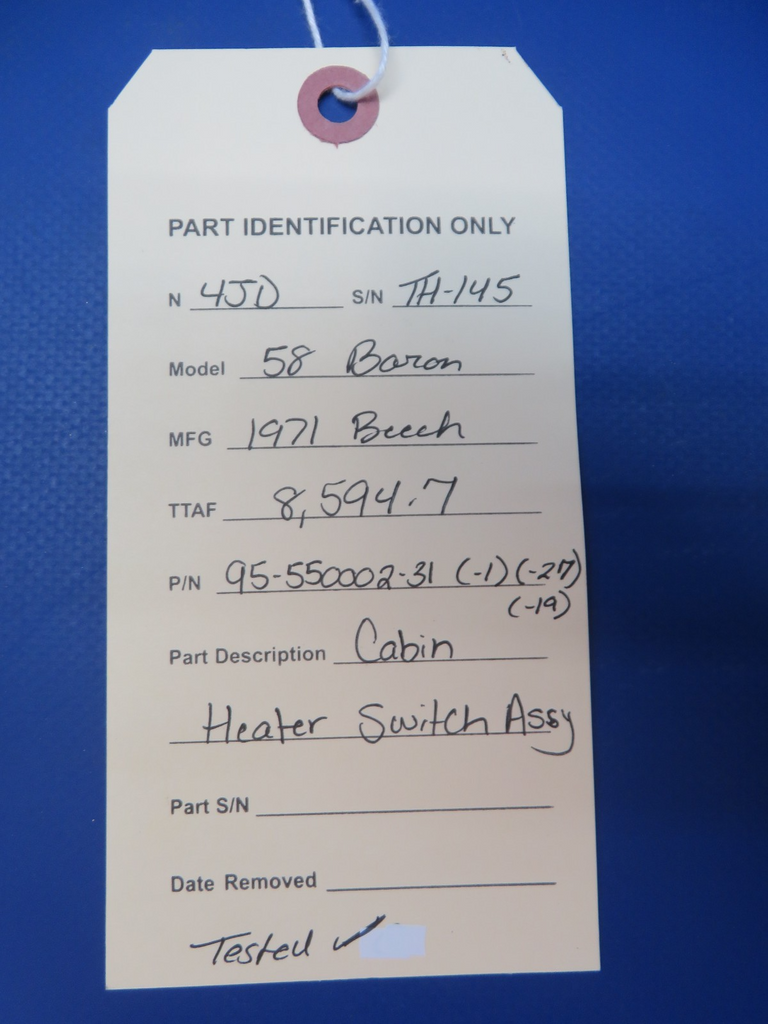 PART IDENTIFICATION ONLY
N 4JD S/N TH-145
Model 58 Baron
MFG 1971 Beech
TTAF 8,594.7
P/N 95-550002-31 (-1) (-27)
(-19)
Part Description Cabin
Heater Switch Assy
Part S/N
Date Removed
Tested ✓